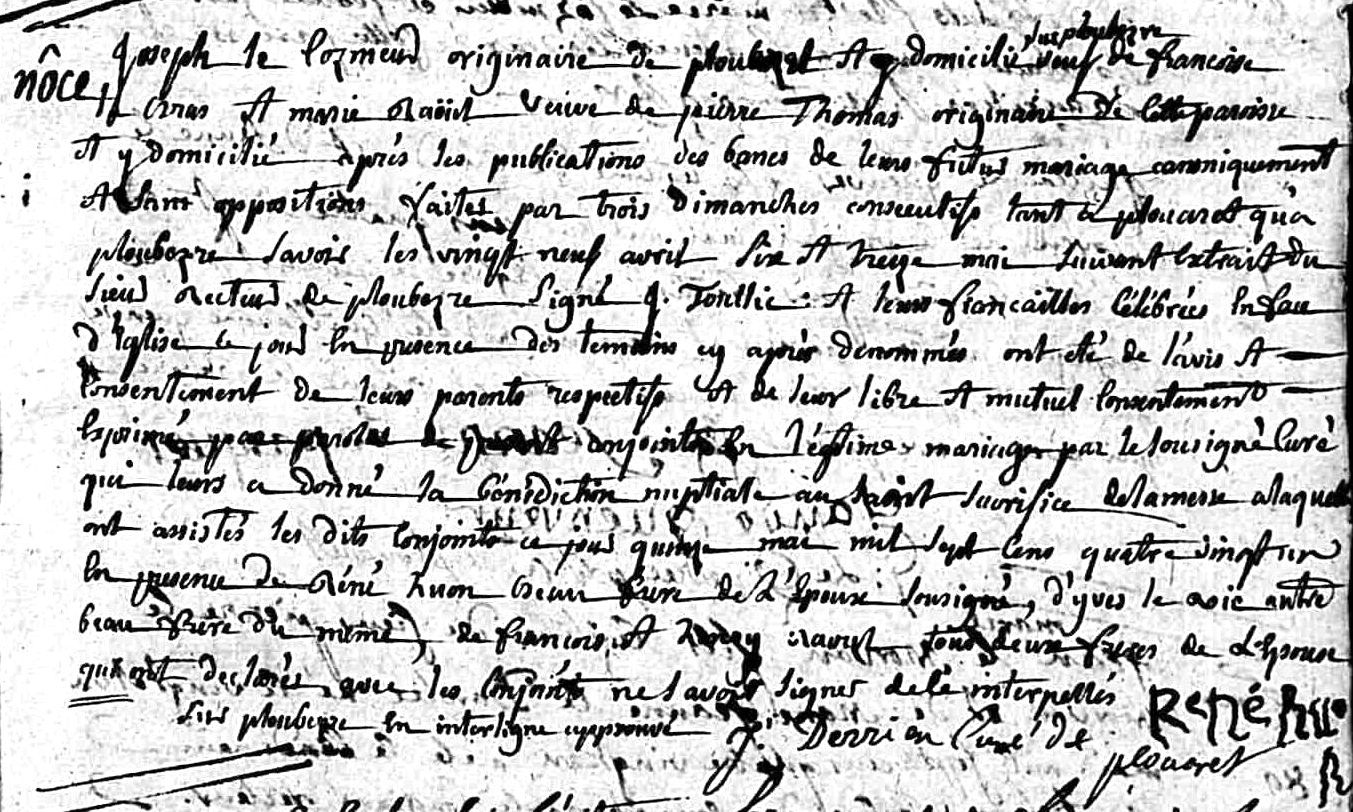 sur ploubezre
nôce, Joseph le Cozmeur originaire de ploubezre Et y domicilié veuf de francoise
Cras Et marie Raoüit veuve de pierre Thomas originaire de Cette paroisse
Et y domicilié après les publications des bancs de leurs futur mariage canoniquement
Et sans oppositions faites par trois Dimanches consecutifs tant à plouaret qu'a
ploubezre savoir les vingt neuf avril Six Et treize mai suivant Extrait du
Sieur Recteur de ploubezre signé J. Toullic: Et leurs fiancailles Célébrées En face
d'Eglise ce jour En presence des temoins cy après denommés ont eté de l'avis Et
Consentement de leurs parents respectifs Et de leur libre Et mutuel Consentement
Exprimé par paroles de present conjoints En légitime mariage par le sousigné Curé
qui leurs a donné la Bénédiction nuptiale au saint Sacrifice de la messe a laquelle
ont assistés les dits Conjoints ce jour quinze mai mil sept Cens quatre vingt un
En presence de Réné huon beau frère de L'Epouse sousigné, d'yves le autre
beau frère du même, de francois Et raouit tous deux freres de L'Epouse
qui ont declarés avec les Conjoints ne savoir signer de ce interpellés
sur ploubezre En interligne approuvé J. Derrien Curé de
plouaret
René huo